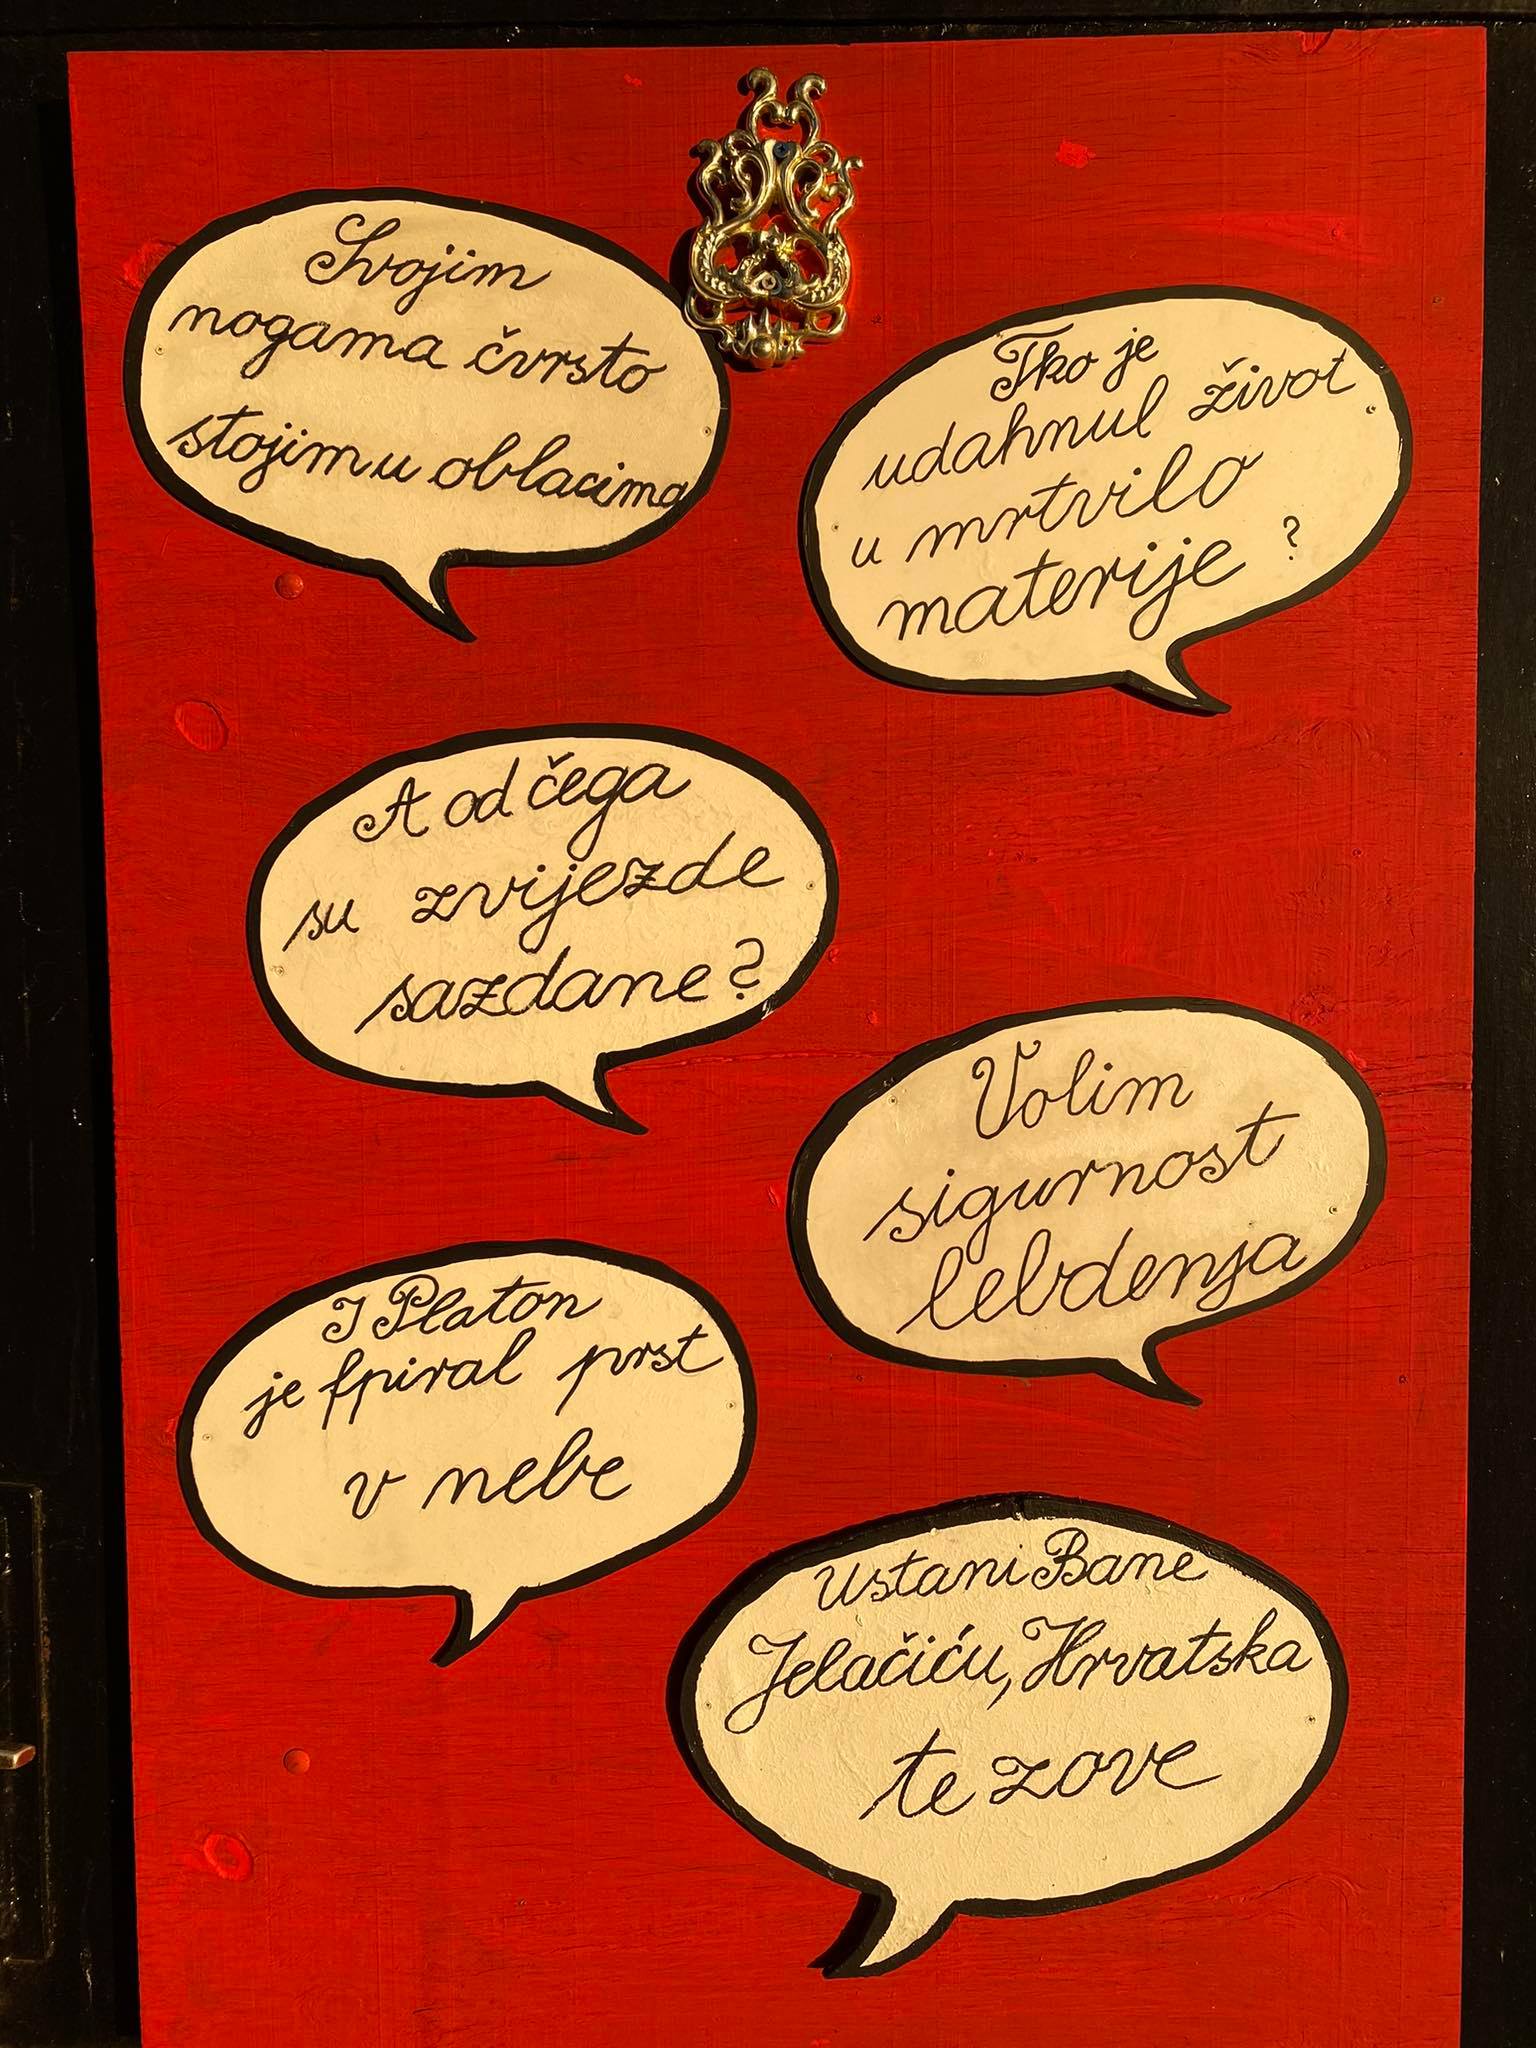 Svojim
nogama čvrsto
stojim u oblacima
Tko je
udahnul život
u mrtvilo
materije?
A od čega
su zvijezde
sazdane?
Volim
sigurnost
lebdenja
I Platon
je fpiral prst
v nebe
Ustani Bane
Jelačiću, Hrvatska
te zove